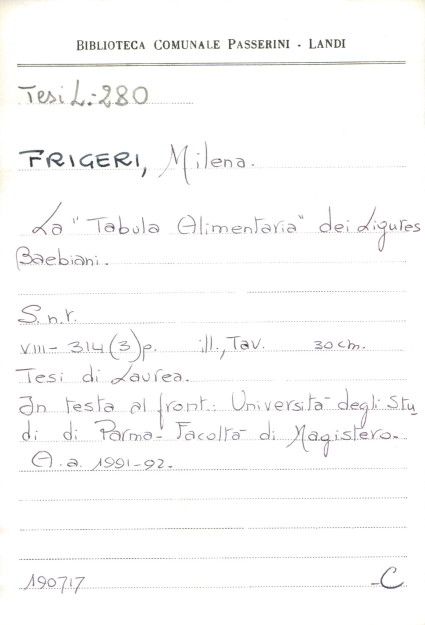 BIBLIOTECA COMUNALE PASSERINI - LANDI
Tesi L.-280
FRIGERI, Milena.
La "Tabula Alimentaria" dei Ligures
Baebiani.
S.n.t.
VIII- 314(3)p. ill., Tav. 30 cm.
Tesi di Laurea.
In testa al front.: Università degli Stu_
di di Parma- Facoltà di Magistero.
A.a. 1991-92.
190717 -C